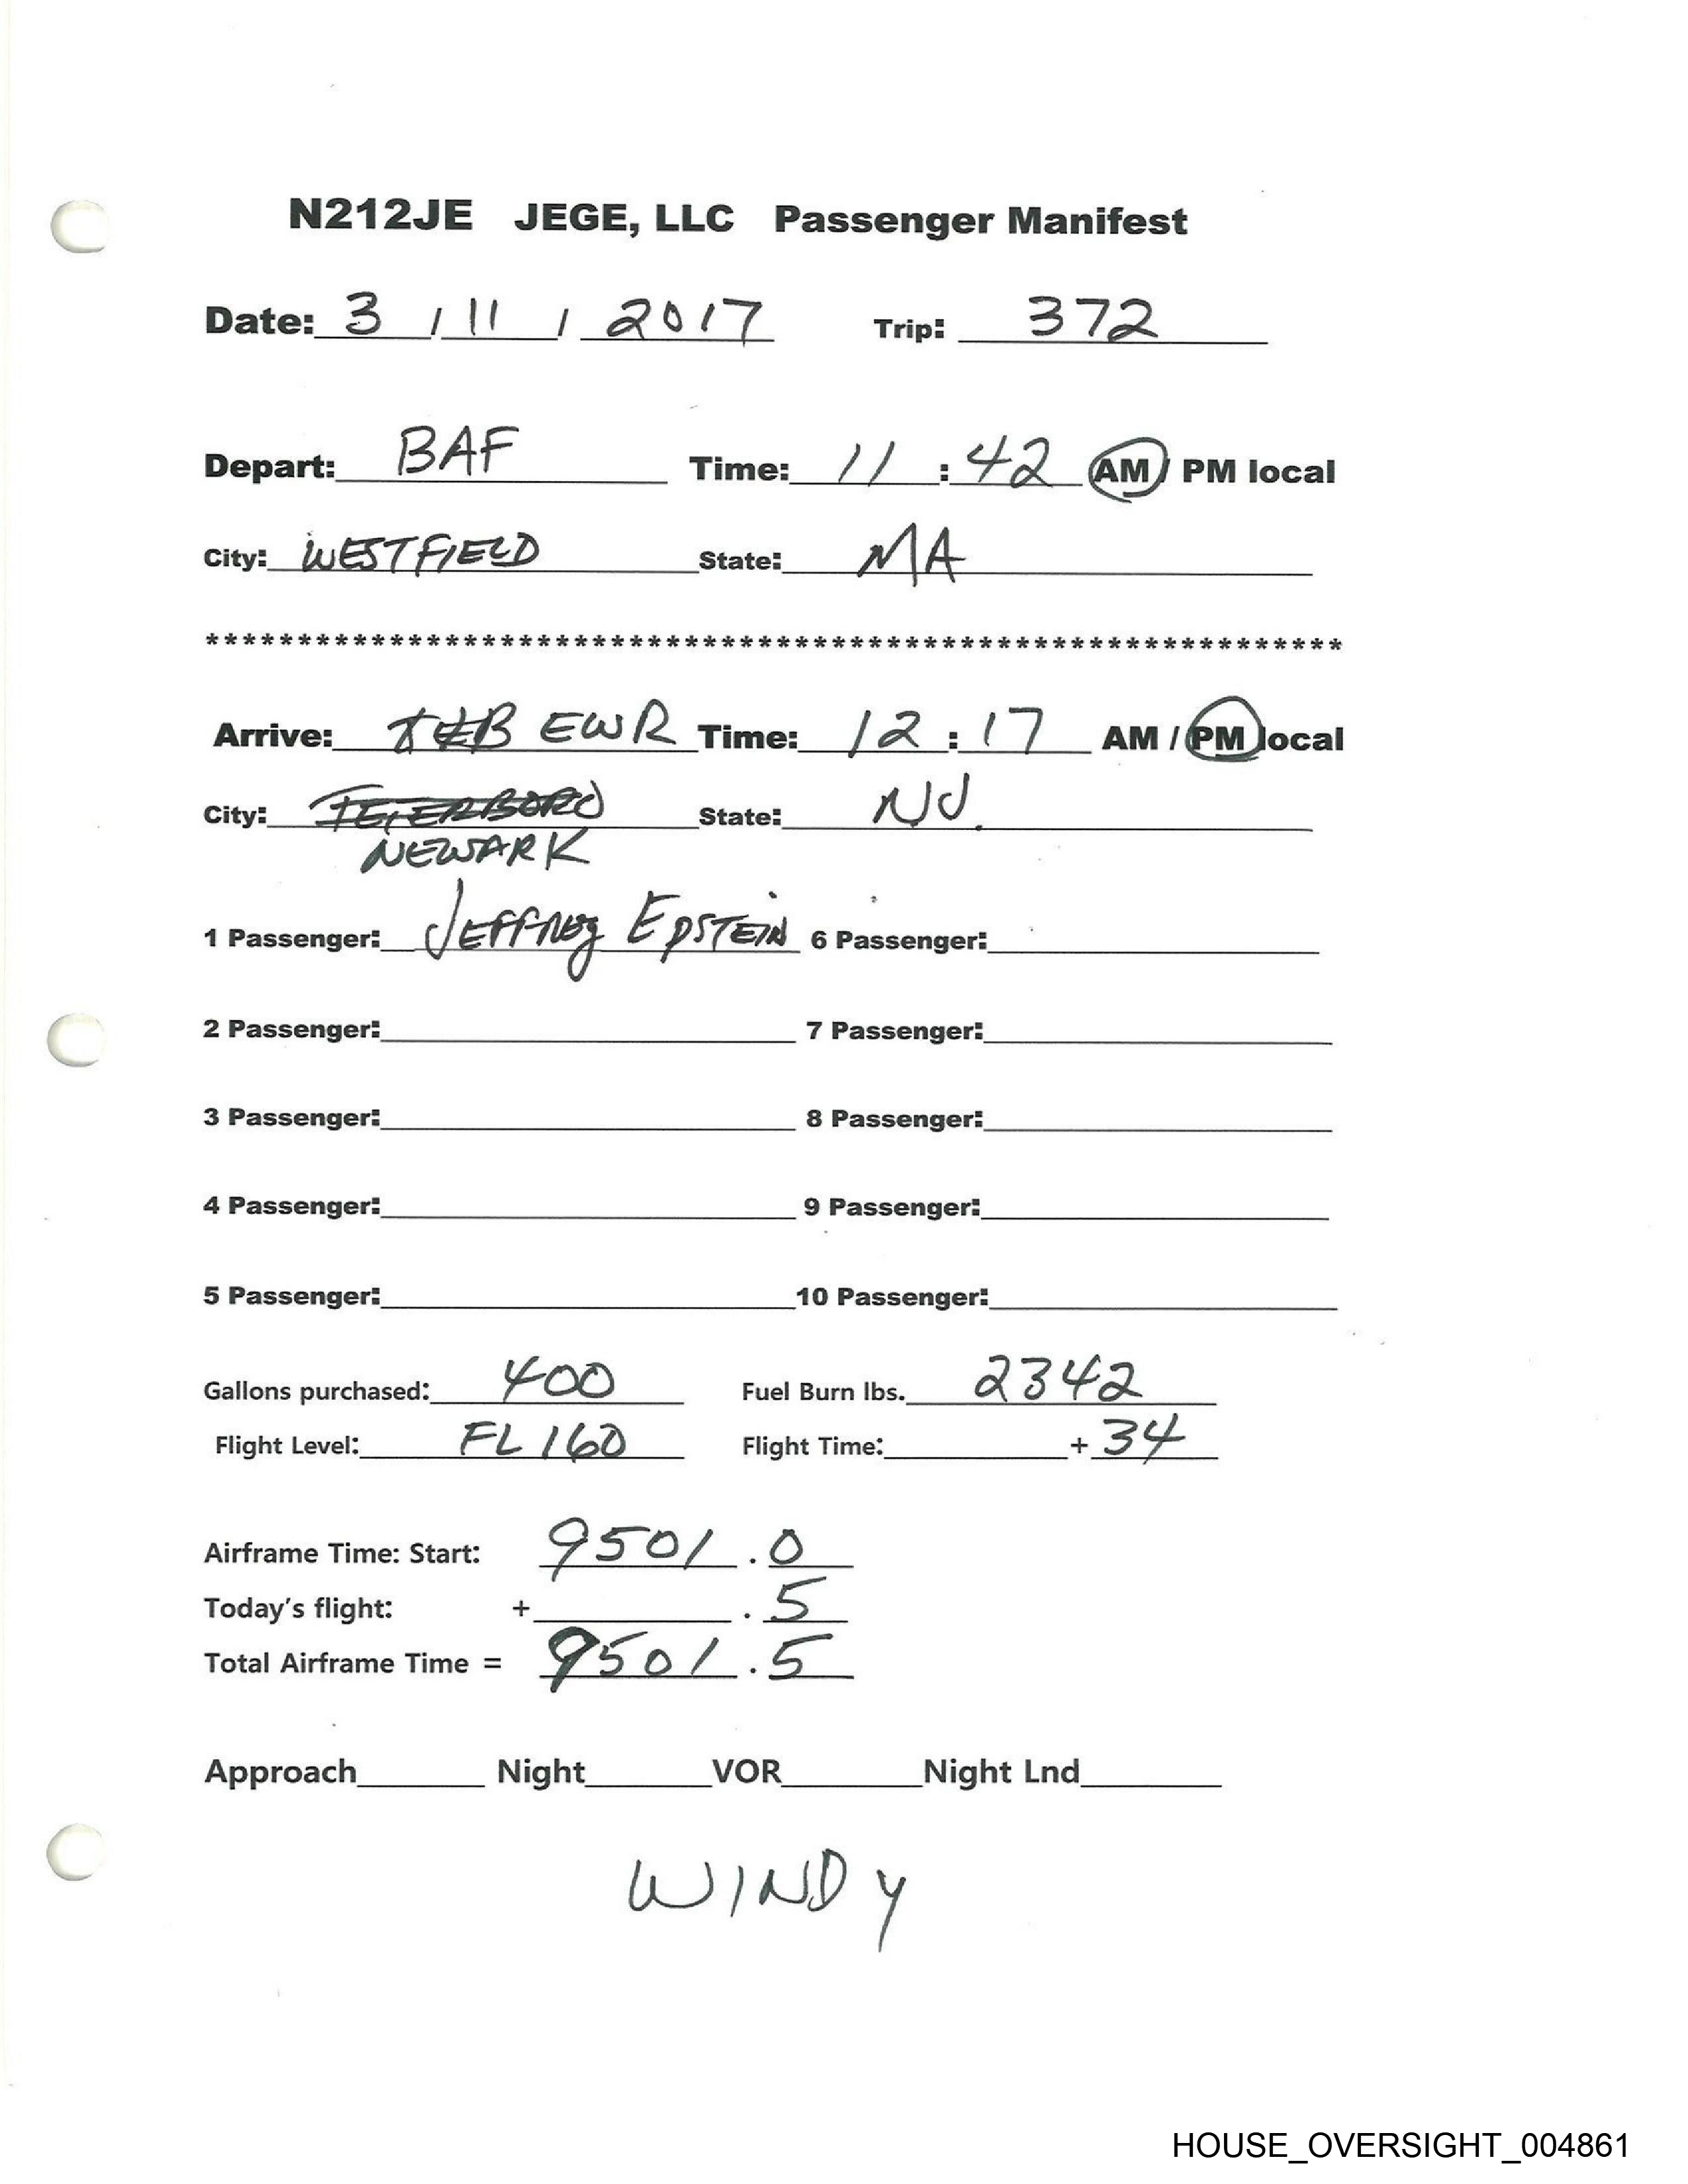 N212JE JEGE, LLC Passenger Manifest
Date: 3 / 11 / 2017 Trip: 372
Depart: BAF Time: 11 : 42 AM / PM local
City: WESTFIELD State: MA
**************************************************************
Arrive: TEB EWR Time: 12 : 17 AM / PM local
City: TETERBORO State: NJ.
NEWARK
1 Passenger: JEFFREY EPSTEIN 6 Passenger:
2 Passenger: 7 Passenger:
3 Passenger: 8 Passenger:
4 Passenger: 9 Passenger:
5 Passenger: 10 Passenger:
Gallons purchased: 400 Fuel Burn lbs. 2342
Flight Level: FL 160 Flight Time: + 34
Airframe Time: Start: 9501 . 0
Today's flight: + . 5
Total Airframe Time = 9501 . 5
Approach Night VOR Night Lnd
WINDY
HOUSE_OVERSIGHT_004861